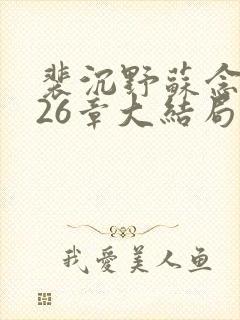 裴沉野蘇念
26章大結局
我愛美人鱼